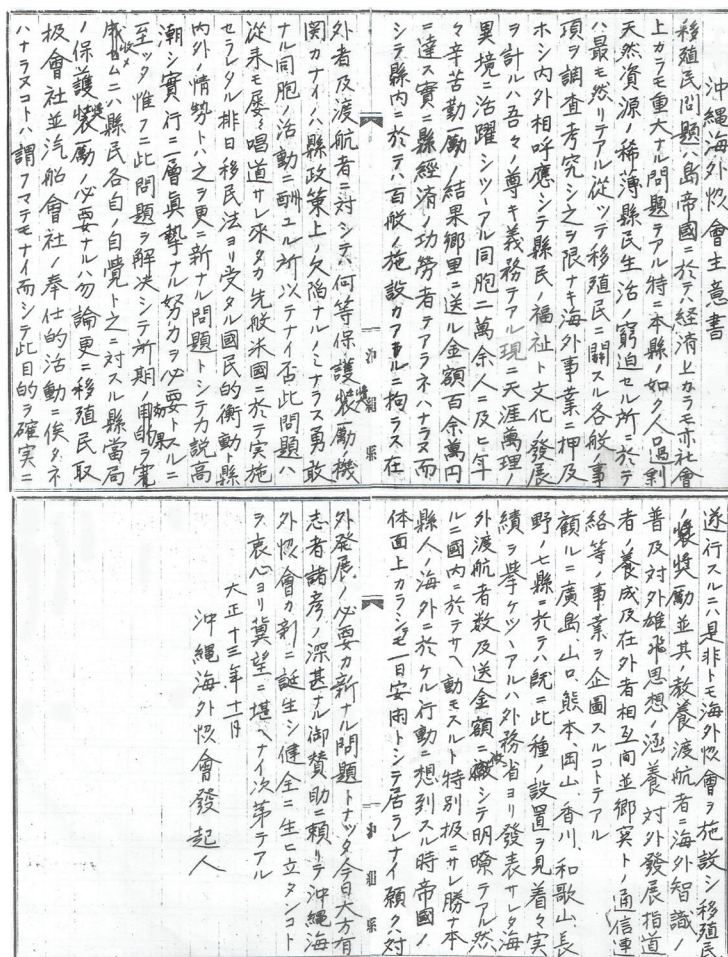 沖縄海外協會主意書
移殖民問題ハ島帝國ニ於テハ経済上カラモ亦社會
上カラモ重大ナル問題テアル特ニ本縣ノ如ク人口過剰
天然資源ノ稀薄縣民生活ノ窮迫セル所ニ於テ
ハ最モ然リテアル從ッテ移殖民ニ関スル各般ノ事
項ヲ調査考究シ之ヲ限ナキ海外事業ニ押及
ホシ内外相呼應シテ縣民ノ福祉ト文化ノ發展
ヲ計ルハ吾々ノ尊キ義務テアル現ニ天涯萬理ノ
異境ニ活躍シツヽアル同胞二萬余人ニ及ヒ年
々辛苦勤勤ノ結果郷里ニ送ル金額百余萬円
ニ達ス實ニ縣経済ノ功勞者テアラネハナラヌ而
シテ縣内ニ於テハ百般ノ施設カアルニ拘ラス在
外者及渡航者ニ対シテハ何等保護奨勵ノ機
関カナイノハ縣政策上ノ欠陥ナルノミナラス勇敢
ナル同胞ノ活動ニ酬ユル所以テナイ否此問題ハ
從来モ屡々唱道サレ來タカ先般米國ニ於テ実施
セラレタル排日移民法ヨリ受タル國民的衝動ト縣
内外ノ情勢トハ之ヲ更ニ新ナル問題トシテカ説高
潮シ實行ニ一層眞摯ナル努力ヲ必要トスルニ
至ッタ惟フニ此問題ヲ解決シテ所期ノ効果ヲ
収メムニハ縣民各自ノ自覺ト之ニ対スル縣當局
ノ保護奨勵ノ必要ナルハ勿論更ニ移殖民取
扱會社並汽船會社ノ奉仕的活動ニ俟タネ
ハナラヌコトハ謂フマテモナイ而シテ此目的ヲ確実ニ
遂行スルニハ是非トモ海外協會ヲ施設シ移殖民
ノ奨勵並其ノ教養渡航者ニ海外智識ノ
普及対外雄飛思想ノ涵養対外發展指道
者ノ養成及在外者相互間並郷里トノ通信連
絡等ノ事業ヲ企圖スルコトテアル
顧ルニ廣島山口熊本岡山、香川、和歌山、長
野ノ七縣ニ於テハ既ニ此種ノ設置ヲ見着々実
績ヲ擧ケツヽアルハ外務省ヨリ發表サレタ海
外渡航者数及送金額ニ徴シテ明瞭テアル然
ルニ國内ニ於テサヘ動モスルト特別扱ニサレ勝ナ本
縣人ノ海外ニ於ケル行動ニ想到スル時帝國ノ
体面上カラシモ一日安閑トシテ居ラレナイ願クハ対
外發展ノ必要カ新ナル問題トナッタ今日大方有
志者諸彦ノ深甚ナル御賛助ニ頼リテ沖縄海
外協會カ新ニ誕生シ健全ニ生ヒ立タンコト
ヲ衷心ヨリ冀望ニ堪ヘナイ次第テアル
大正十三年十一月
沖縄海外協會發起人